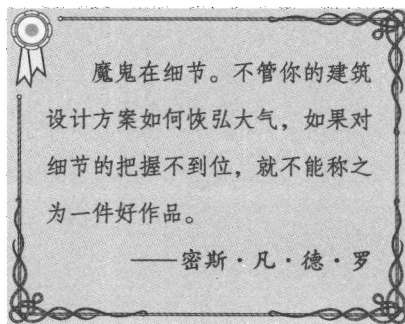 魔鬼在细节。不管你的建筑
设计方案如何恢弘大气，如果对
细节的把握不到位，就不能称之
为一件好作品。
——密斯·凡·德·罗